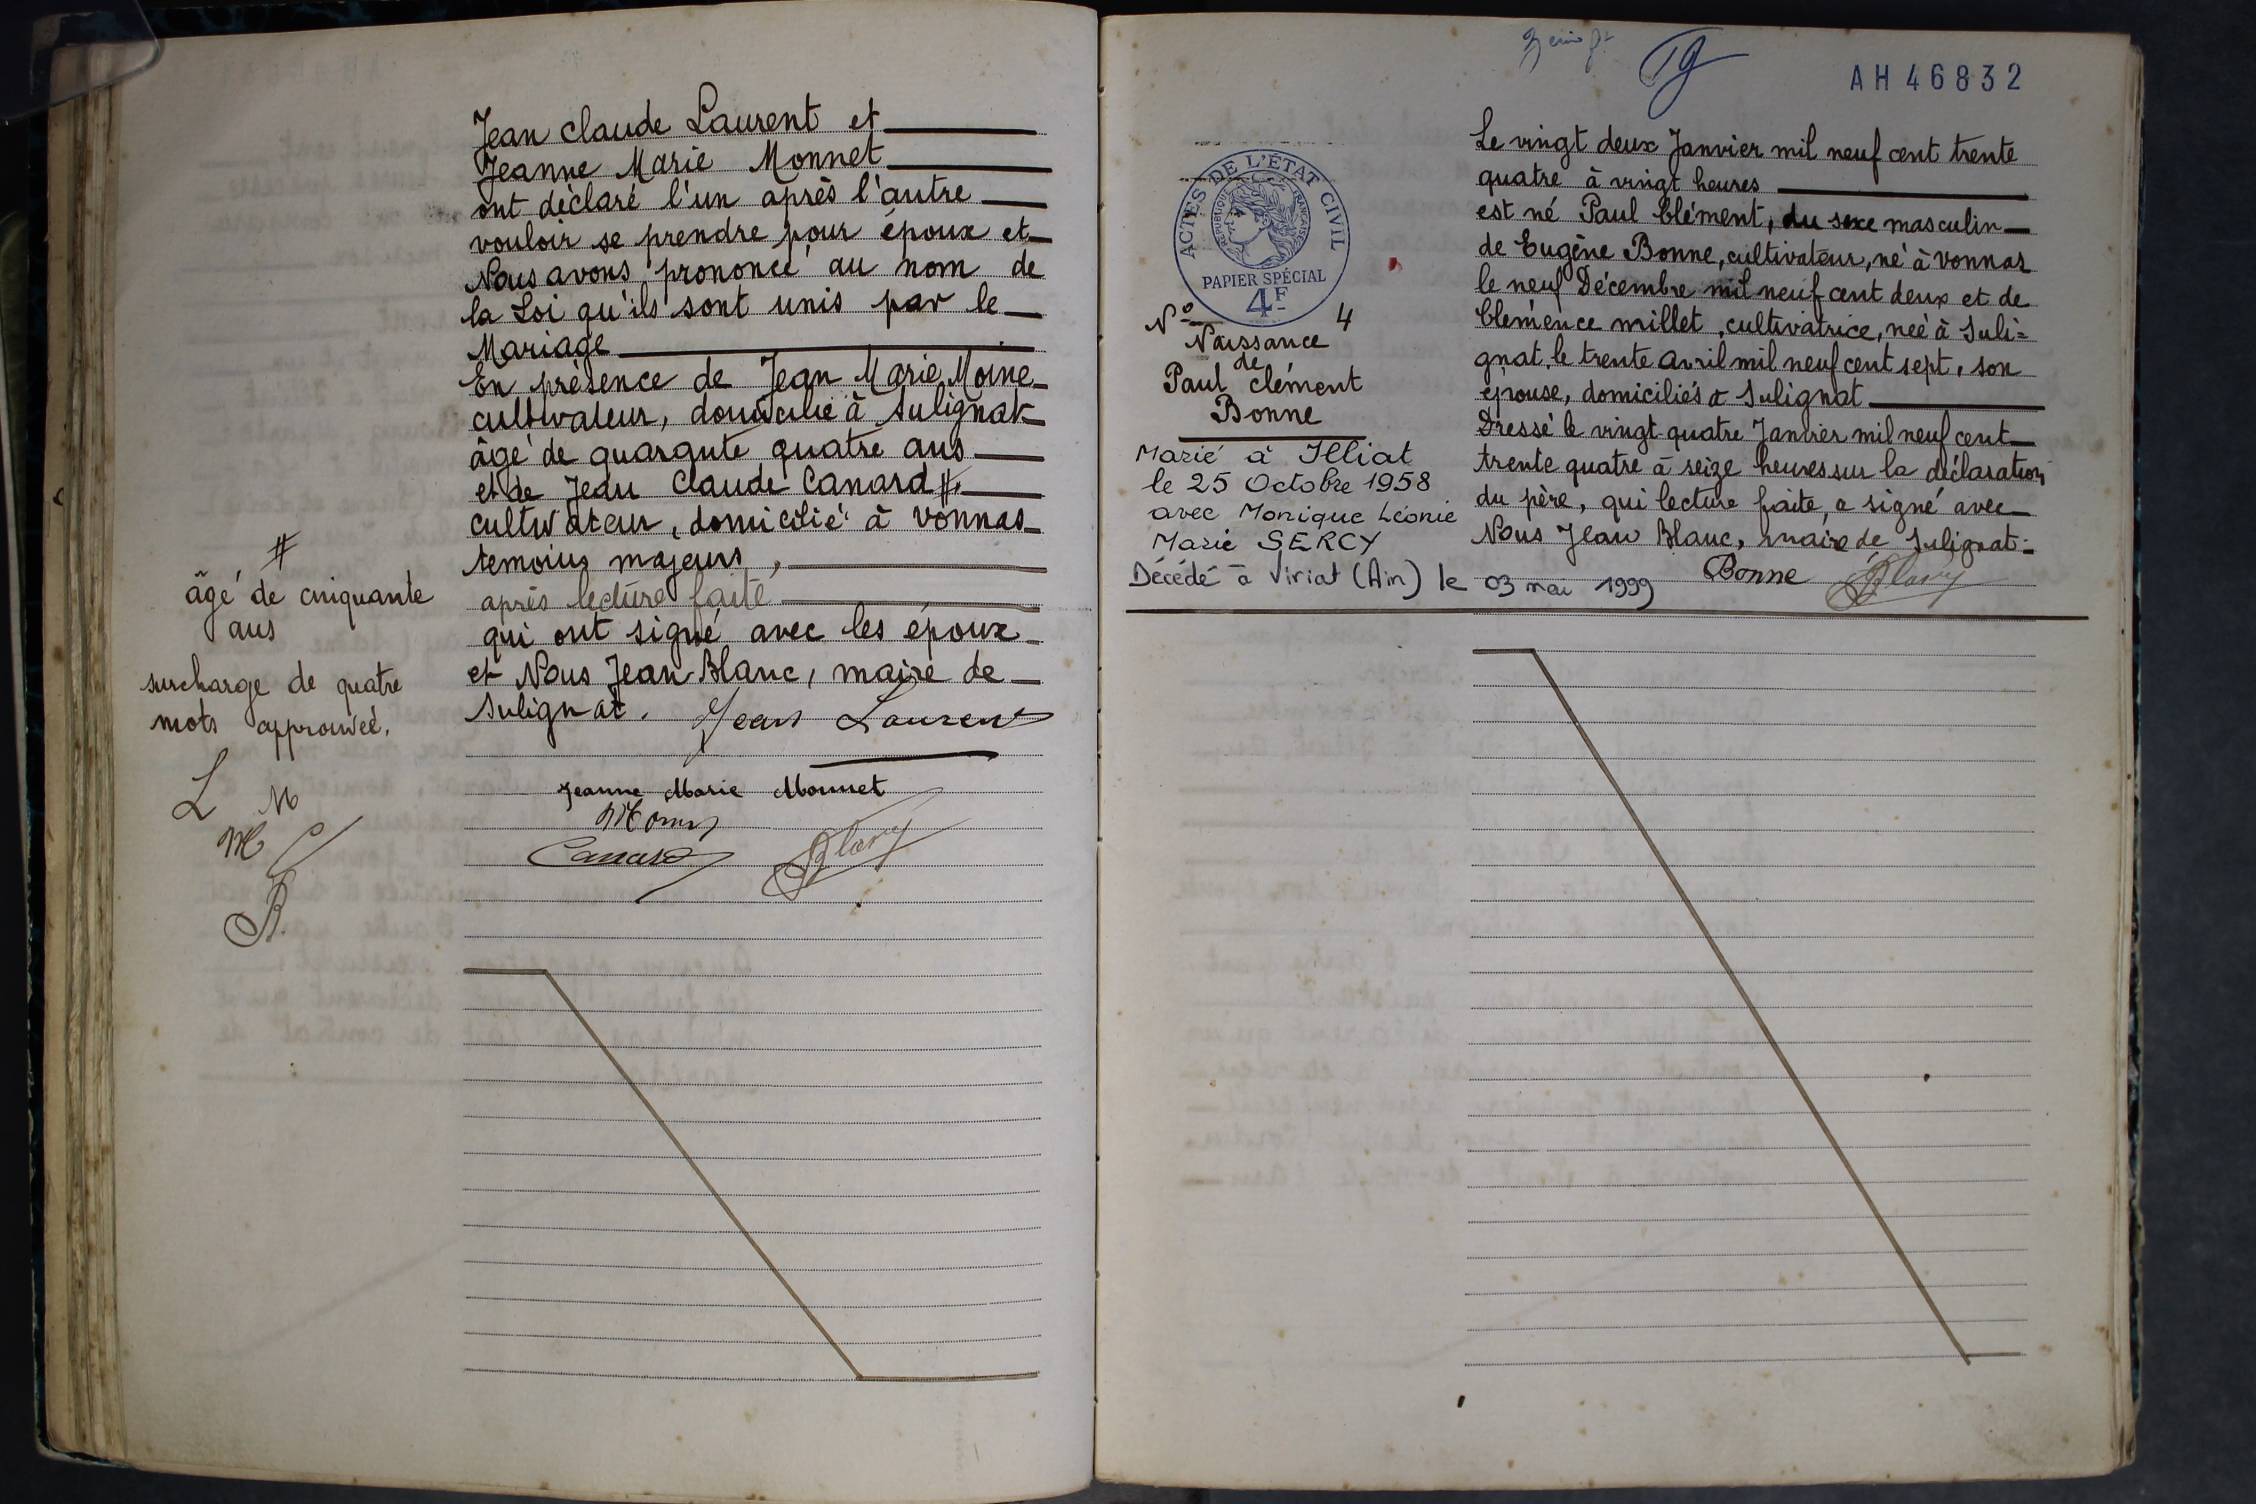 Jean Claude Laurent et
Jeanne Marie Monnet
ont déclaré l'un après l'autre
vouloir se prendre pour époux et
Nous avons prononcé au nom de
la Loi qu'ils sont unis par le
Mariage
En présence de Jean Marie Moine
cultivateur, domicilié à Sulignat
âgé de quarante quatre ans
et de Jean Claude Canard #,
cultivateur, domicilié à Vonnas
temoins majeurs,
après lecture faite
qui ont signé avec les époux
et Nous Jean Blanc, maire de
Sulignat.
Jean Laurent
Jeanne Marie Monnet
Canard
#
âgé de cinquante
ans
surcharge de quatre
mots approuvée.
L M
M C
B.
AH46832
ACTES DE L'ÉTAT CIVIL
RÉPUBLIQUE FRANÇAISE
PAPIER SPÉCIAL
4F
N° 4
Naissance
de
Paul Clément
Bonne
Marié à Illiat
le 25 Octobre 1958
avec Monique Léonie
Marie SERCY
Décédé à Viriat (Ain) le 03 mai 1999
Le vingt deux Janvier mil neuf cent trente
quatre à vingt heures
est né Paul Clément, du sexe masculin
de Eugène Bonne, cultivateur, né à Vonnas
le neuf Décembre mil neuf cent deux et de
Clémence Millet, cultivatrice, neé à Suli=
gnat, le trente avril mil neuf cent sept, son
épouse, domiciliés à Sulignat
Dressé le vingt quatre Janvier mil neuf cent
trente quatre à seize heures sur la déclaration
du père, qui lecture faite, a signé avec
Nous Jean Blanc, maire de Sulignat.
Bonne